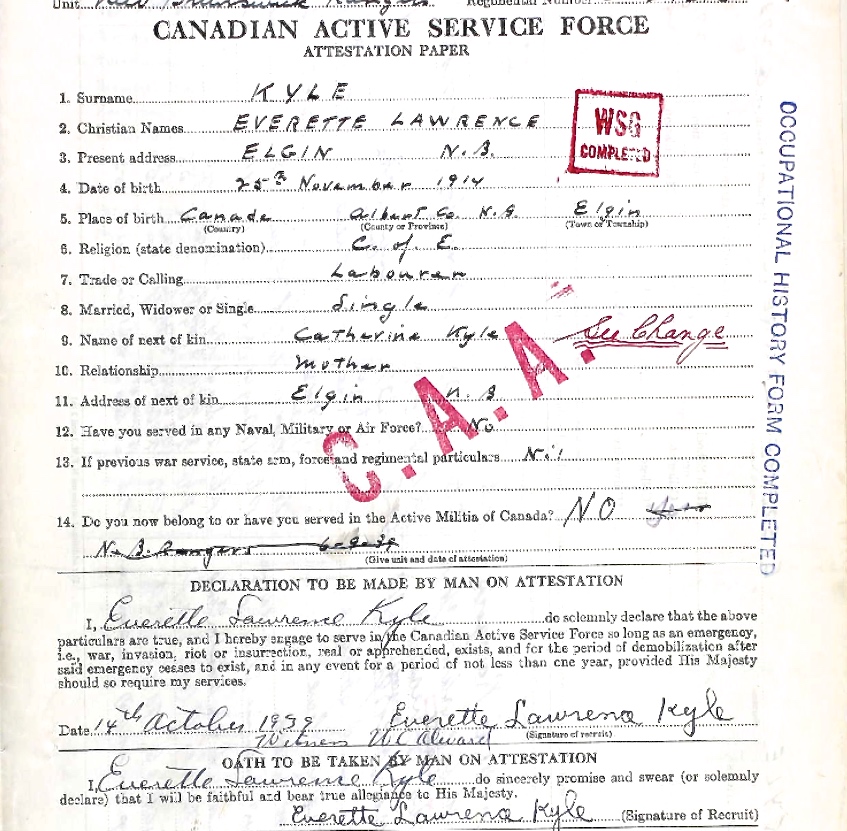 Unit New Brunswick Rangers Regimental Number
CANADIAN ACTIVE SERVICE FORCE
ATTESTATION PAPER
1. Surname KYLE
2. Christian Names EVERETTE LAWRENCE
3. Present address ELGIN N.B.
4. Date of birth 25th November 1914
5. Place of birth Canada Albert Co. N.B. Elgin
(Country) (County or Province) (Town or Township)
6. Religion (state denomination) C. of E.
7. Trade or Calling Labourer
8. Married, Widower or Single Single
9. Name of next of kin Catherine Kyle See Change
10. Relationship Mother
11. Address of next of kin Elgin N.B
12. Have you served in any Naval, Military or Air Force? No
13. If previous war service, state arm, force and regimental particulars Nil
14. Do you now belong to or have you served in the Active Militia of Canada? NO
N.B. Rangers 6-9-39
(Give unit and date of attestation)
WSG
COMPLETED
C.A.A.
OCCUPATIONAL HISTORY FORM COMPLETED
DECLARATION TO BE MADE BY MAN ON ATTESTATION
I, Everette Lawrence Kyle do solemnly declare that the above
particulars are true, and I hereby engage to serve in the Canadian Active Service Force so long as an emergency,
i.e., war, invasion, riot or insurrection, real or apprehended, exists, and for the period of demobilization after
said emergency ceases to exist, and in any event for a period of not less than one year, provided His Majesty
should so require my services.
Date 14th October 1939 Everette Lawrence Kyle
(Signature of recruit)
Witness
OATH TO BE TAKEN BY MAN ON ATTESTATION
I, Everette Lawrence Kyle do sincerely promise and swear (or solemnly
declare) that I will be faithful and bear true allegiance to His Majesty.
Everette Lawrence Kyle (Signature of Recruit)